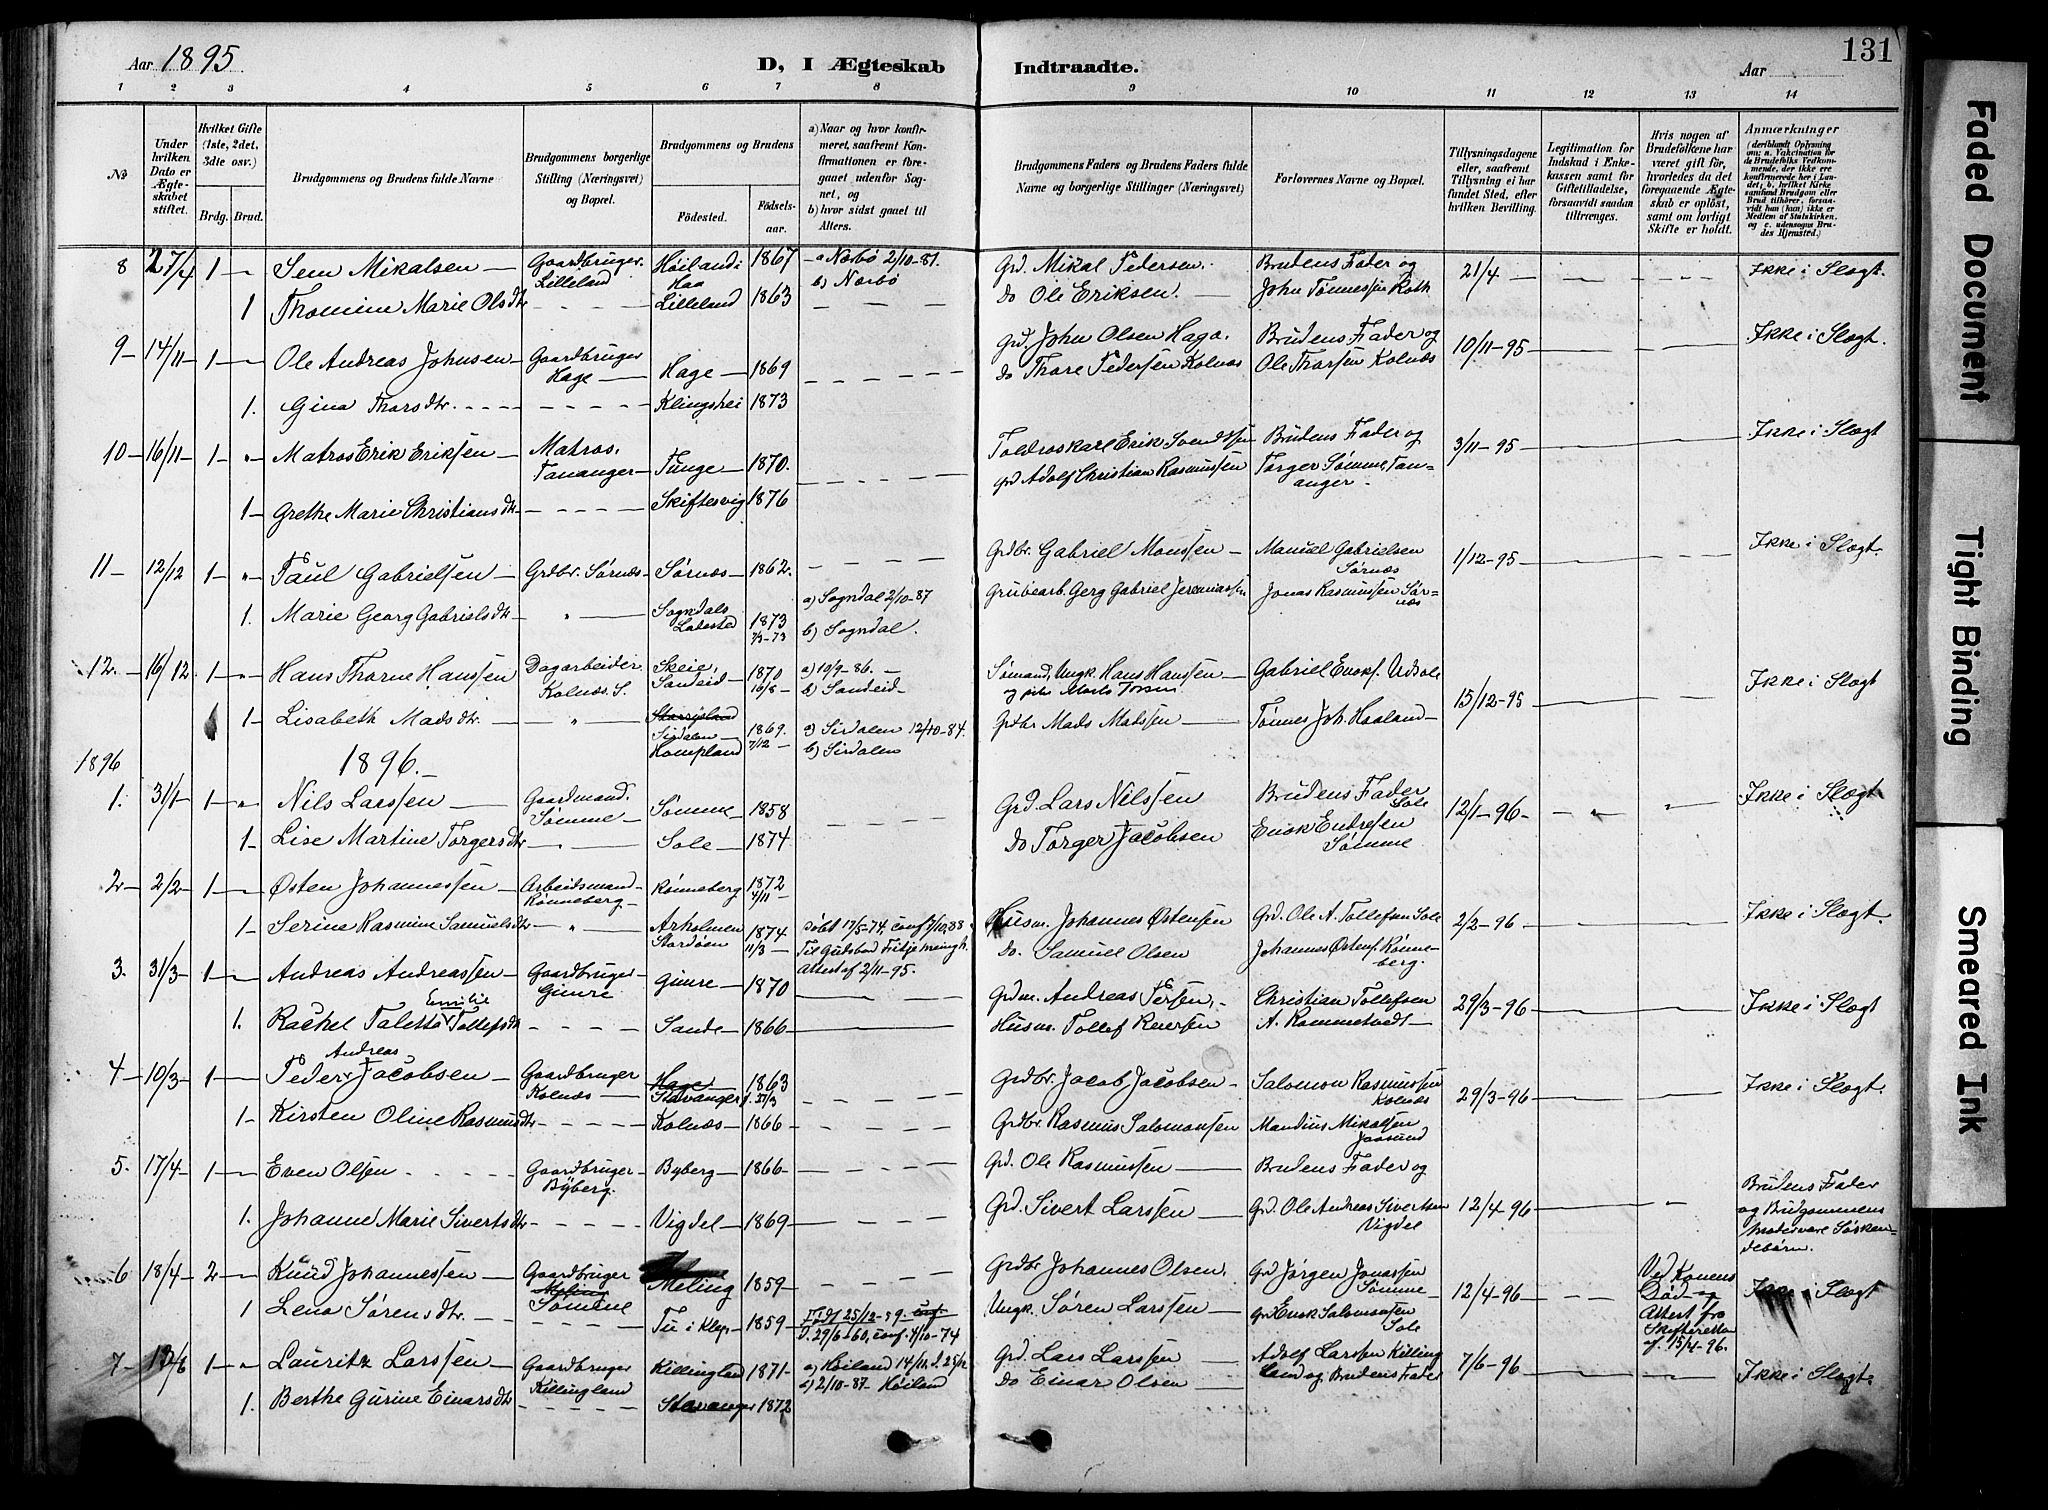 Aar 1895
D, I Ægteskab
Indtraadte.
Aar
131
1 2 3 4 5 6 7 8 9 10 11 12 13 14
No
Under hvilken Dato er Ægteskabet stiftet.
Hvilket Gifte (1ste, 2det, 3die osv.)
Brdg. Brud.
Brudgommens og Brudens fulde Navne
Brudgommens borgerlige Stilling (Næringsvei) og Bopæl.
Brudgommens og Brudens
Fødested.
Fødselsaar.
a) Naar og hvor konfirmeret, saafremt Konfirmationen er foregaaet udenfor Sognet, og
b) hvor sidst gaaet til Alters.
Brudgommens Faders og Brudens Faders fulde Navne og borgerlige Stillinger (Næringsvei)
Forlovernes Navne og Bopæl.
Tillysningsdagene eller, saafremt Tillysning ei har fundet Sted, efter hvilken Bevilling.
Legitimation for Indskud i Enkekassen samt for Giftetilladelse, forsaavidt saadan tiltrænges.
Hvis nogen af Brudefolkene har været gift før, hvorledes da det foregaaende Ægteskab er opløst, samt om lovligt Skifte er holdt.
Anmærkninger (deriblandt Oplysning om: a. Vakcination for de Brudefolks Vedkommende, der ikke ere konfirmerede her i Landet; b. hvilket Kirkesamfund Brudgom eller Brud tilhører, forsaavidt han (hun) ikke er Medlem af Statskirken, og c. udensogns Brudes Hjemsted.)
8 27/4 1 " Sem Mikalsen Gaardbruger Lilleland Høiland i Haa 1867 a Nærbø 2/10-81. b) Nærbø Grd. Mikal Pedersen. Brudens Fader og 21/4 Ikke i Slægt.
1 Thomine Marie Olsdtr Lilleland 1863 do Ole Eriksen. John Tønnessen Roth
9 14/11 1 Ole Andreas Johnsen Gaardbruger Hage Hage 1869 Grd. John Olsen Haga. Brudens Fader og 10/11-95 Ikke i Slægt.
1. Gina Thorsdtr. Klingshei 1873 do Thore Pedersen Kolnæs Ole Thorsen Kolnæs
10 16/11 1 " Matros Erik Eriksen Matros. Tananger Tunge 1870. Toldroskarl Erik Svendsen Brudens Fader og 3/11-95 Ikke i Slægt
1 Grethe Marie Christiansdtr Skiftesvig 1876 grd Adolf Christian Rasmussen Torger Sømme Tananger
11 12/12 1 " Paul Gabrielsen Grdbr. Sørnæs Sørnæs 1862. Grdbr. Gabriel Monssen Manuel Gabrielsen Sørnæs 1/12-95 Ikke i Slægt.
1. Marie Georg Gabrielsdtr " Sogndals Ladested 1873 7/3-73 a) Sogndal 2/10-87 b) Sogndal. Grubearb. Gerg Gabriel Jeremiassen Jonas Rasmussen Sørnæs
12. 16/12 1 " Hans Thorne Hanssen Dagarbeider Kolnæs. S. Skeie, Sandeid 1870 16/8 a) 10/9-86. b) Sandeid Sømand, Ungk. Hans Hanssen Gabriel Enoks. Udsole 15/12-95 Ikke i Slægt
1 Lisabeth Madsdtr. " Sirdalen Hompland 1869. 7/12 a) Sirdalen 12/10-84. b) Sirdalen Grdbr Mads Madssen Tønnes Joh. Haaland
1896 1896.
1. 31/1 1 " Nils Larssen Gaardmand. Sømme Sømme 1858 Grd. Lars Nilssen Brudens Fader Sole 12/1-96 Ikke i Slægt
1 Lise Martine Torgersdtr " Sole 1874 Do Torger Jacobsen Enok Endresen Sømme
2 2/2 1 Østen Johannessen Arbeidsmand Rønneberg Rønneberg 1872 4/11 Husm. Johannes Østensen Grd. Ole A. Tollefsen Sole 2/2-96 Ikke i Slægt.
1 Serine Rasmine Samuelsdtr " Arholmen Stordøen 1874 11/3 Døbt 17/5-74. conf 7/10.88 Til Gudsbord Fitje menigh. Attest af 2/11-95. Do. Samuel Olsen Johannes Østens. Rønneberg.
3. 31/3 1 Andreas Andreassen Gaardbruger Gimre Gimre 1870 Grdm. Andreas Persen Christian Tollefsen 29/3-96 Ikke i Slægt
1. Rachel Taletta Emilie Tollefsdtr Sande 1866 Husm. Tollef Reiersen A. Rommetvedt
4 10/3 1 Peder Andreas Jacobsen Gaardbruger Kolnæs Hage Stavanger 1863 Grdbr. Jacob Jacobsen Salomon Rasmussen Kolnæs 29/3-96 Ikke i Slægt.
1 Kirsten Oline Rasmusdtr Kolnæs 1866 Grdbr. Rasmus Salomonsen Mandius Mikalsen Jaasund
5. 17/4 1 Even Olsen Gaardbruger Byberg. Byberg 1866 Grd. Ole Rasmussen Brudens Fader og 12/4-96 Brudens Fader og Brudgommens Moder vare Søskendebørn.
1. Johanne Marie Sivertsdtr Vigdel 1869 Grd. Sivert Larssen Grd. Ole Andreas Sivertsen Vigdel
6 18/4 2 Knud Johannessen Gaardbruger Meling Sømme Meling 1859 Grdbr Johannes Olsen. Grd Jørgen Jonassen Sømme 12/4-96 Ved Konens Død og Attest fra Skifteretten af 15/4-96. Ikke i Slægt
1 Lena Sørensdtr. Tu i Klep 1859 Født 25/12-59 conf. D. 29/6-60, conf. 4/10-74 Ungk. Søren Larssen Grd Enok Salomonsen Sole
7 13/6 1 " Lauritz Larssen Gaardbruger Killingland Killingland 1871 a) Høiland 14/11. d. 25/12 a) 2/10-87 Høiland Grd. Lars Larssen Adolf Larssen Killingland og Brudens Fader 7/6-96 Ikke i Slægt.
1. Berthe Gurine Einarsdtr Stavanger 1872 Do Einar Olsen
Faded Document
Tight Binding
Smeared Ink